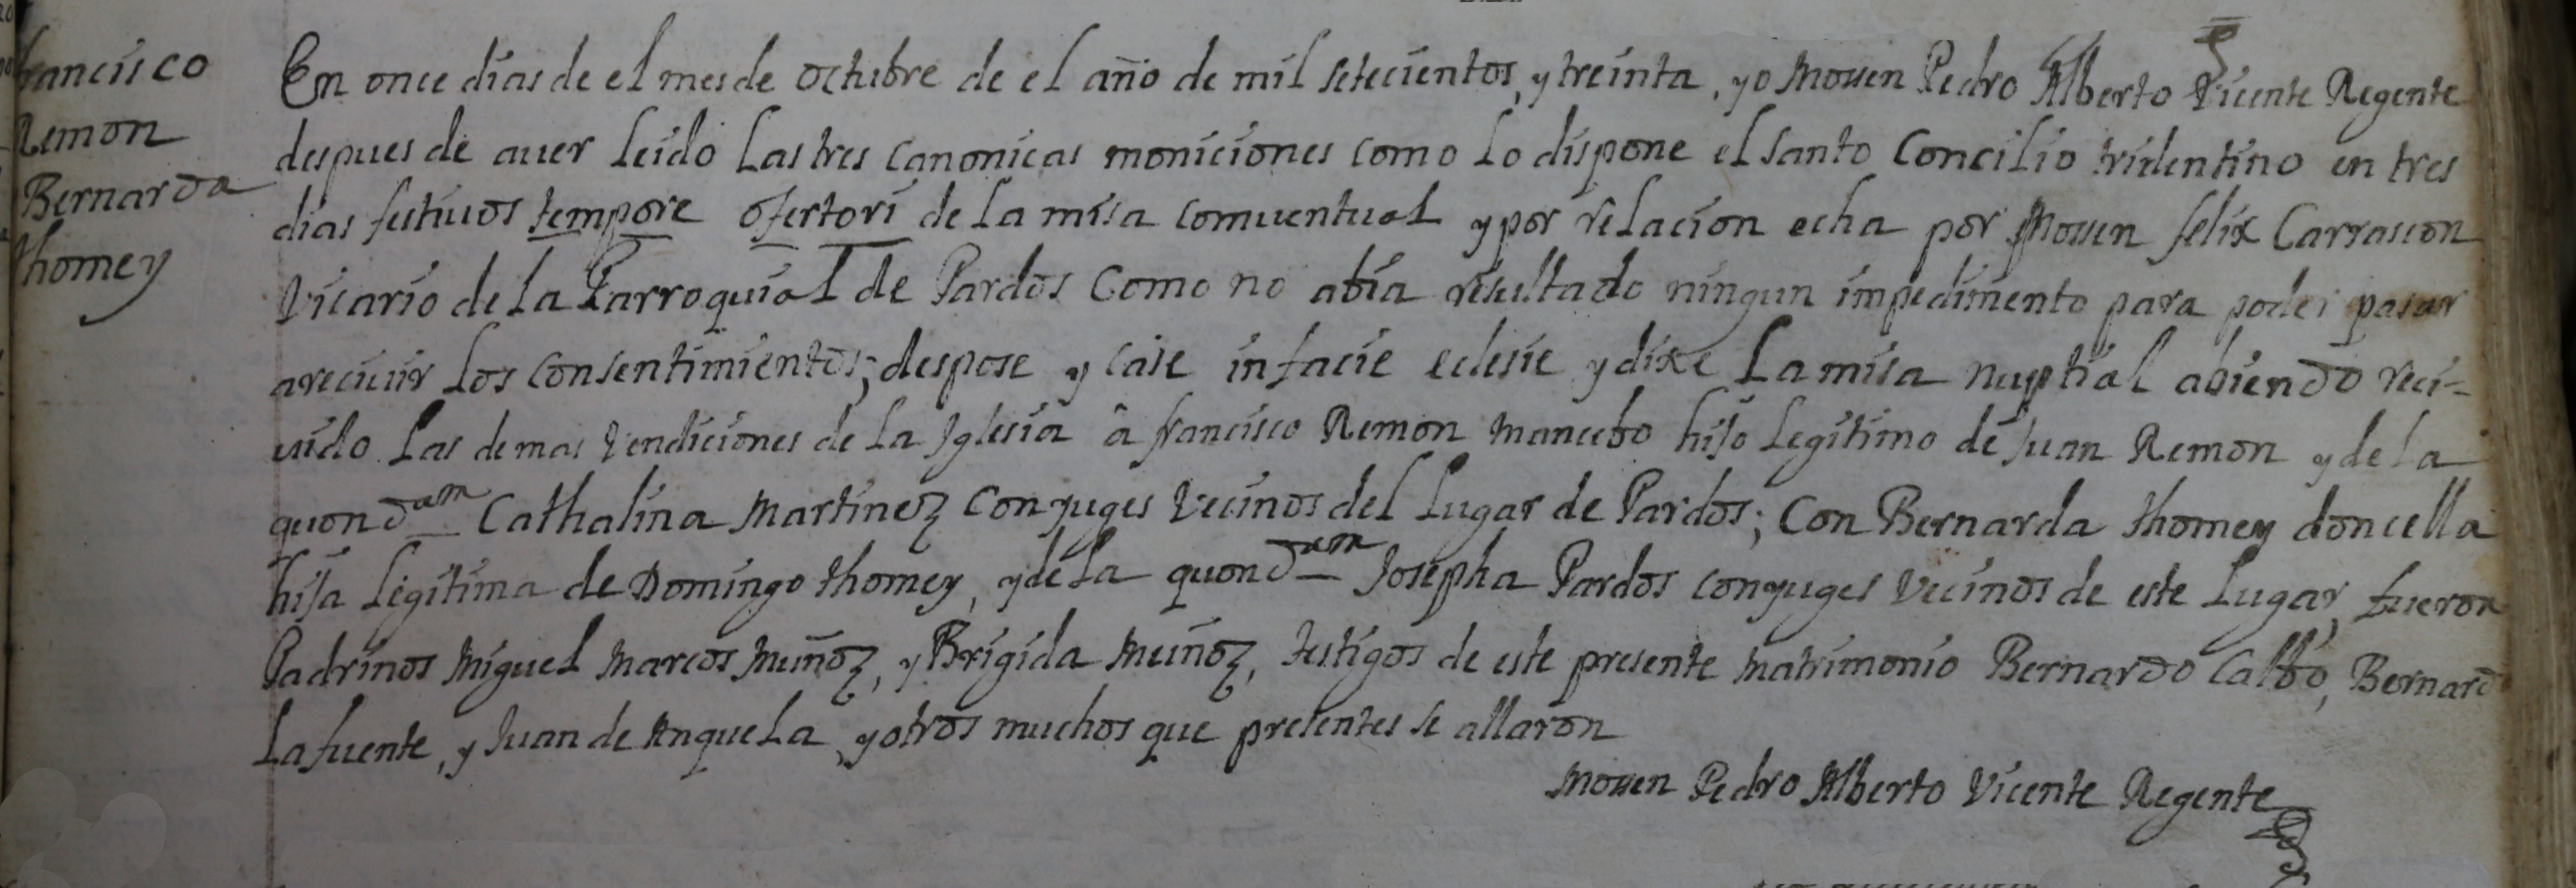 francisco
Remon
Bernarda
thomey
En once dias de el mes de octubre de el año de mil setecientos, y treinta, yo Mossen Pedro Alberto Vicente Regente
despues de auer leido las tres canonicas moniciones como lo dispone el santo Concilio tridentino en tres
dias festiuos tempore ofertori de la missa comuentual y por relacion echa por Mossen felix Carrascon
Vicario de la Parroquial de Pardos Como no abia resultado ningun impedimento para poder pasar
a reciuir los consentimientos; despose y case in facie eclesie y dixe la missa nuptial abiendo reci-
uido las demas vendiciones de la Iglesia â francisco Remon mancebo hijo legitimo de Juan Remon y de la
quondam Cathalina Martinez Conjuges Vecinos del Lugar de Pardos; Con Bernarda thomey doncella
hija legitima de Domingo thomey, y de la quondam Josepha Pardos conyuges Vecinos de este Lugar, fueron
Padrinos Miguel Marcos Muñoz, y Brigida Muñoz, testigos de este presente matrimonio Bernardo Calbo, Bernardo
Lafuente, y Juan de Anquela, y otros muchos que presentes se allaron
Mossen Pedro Alberto Vicente Regente